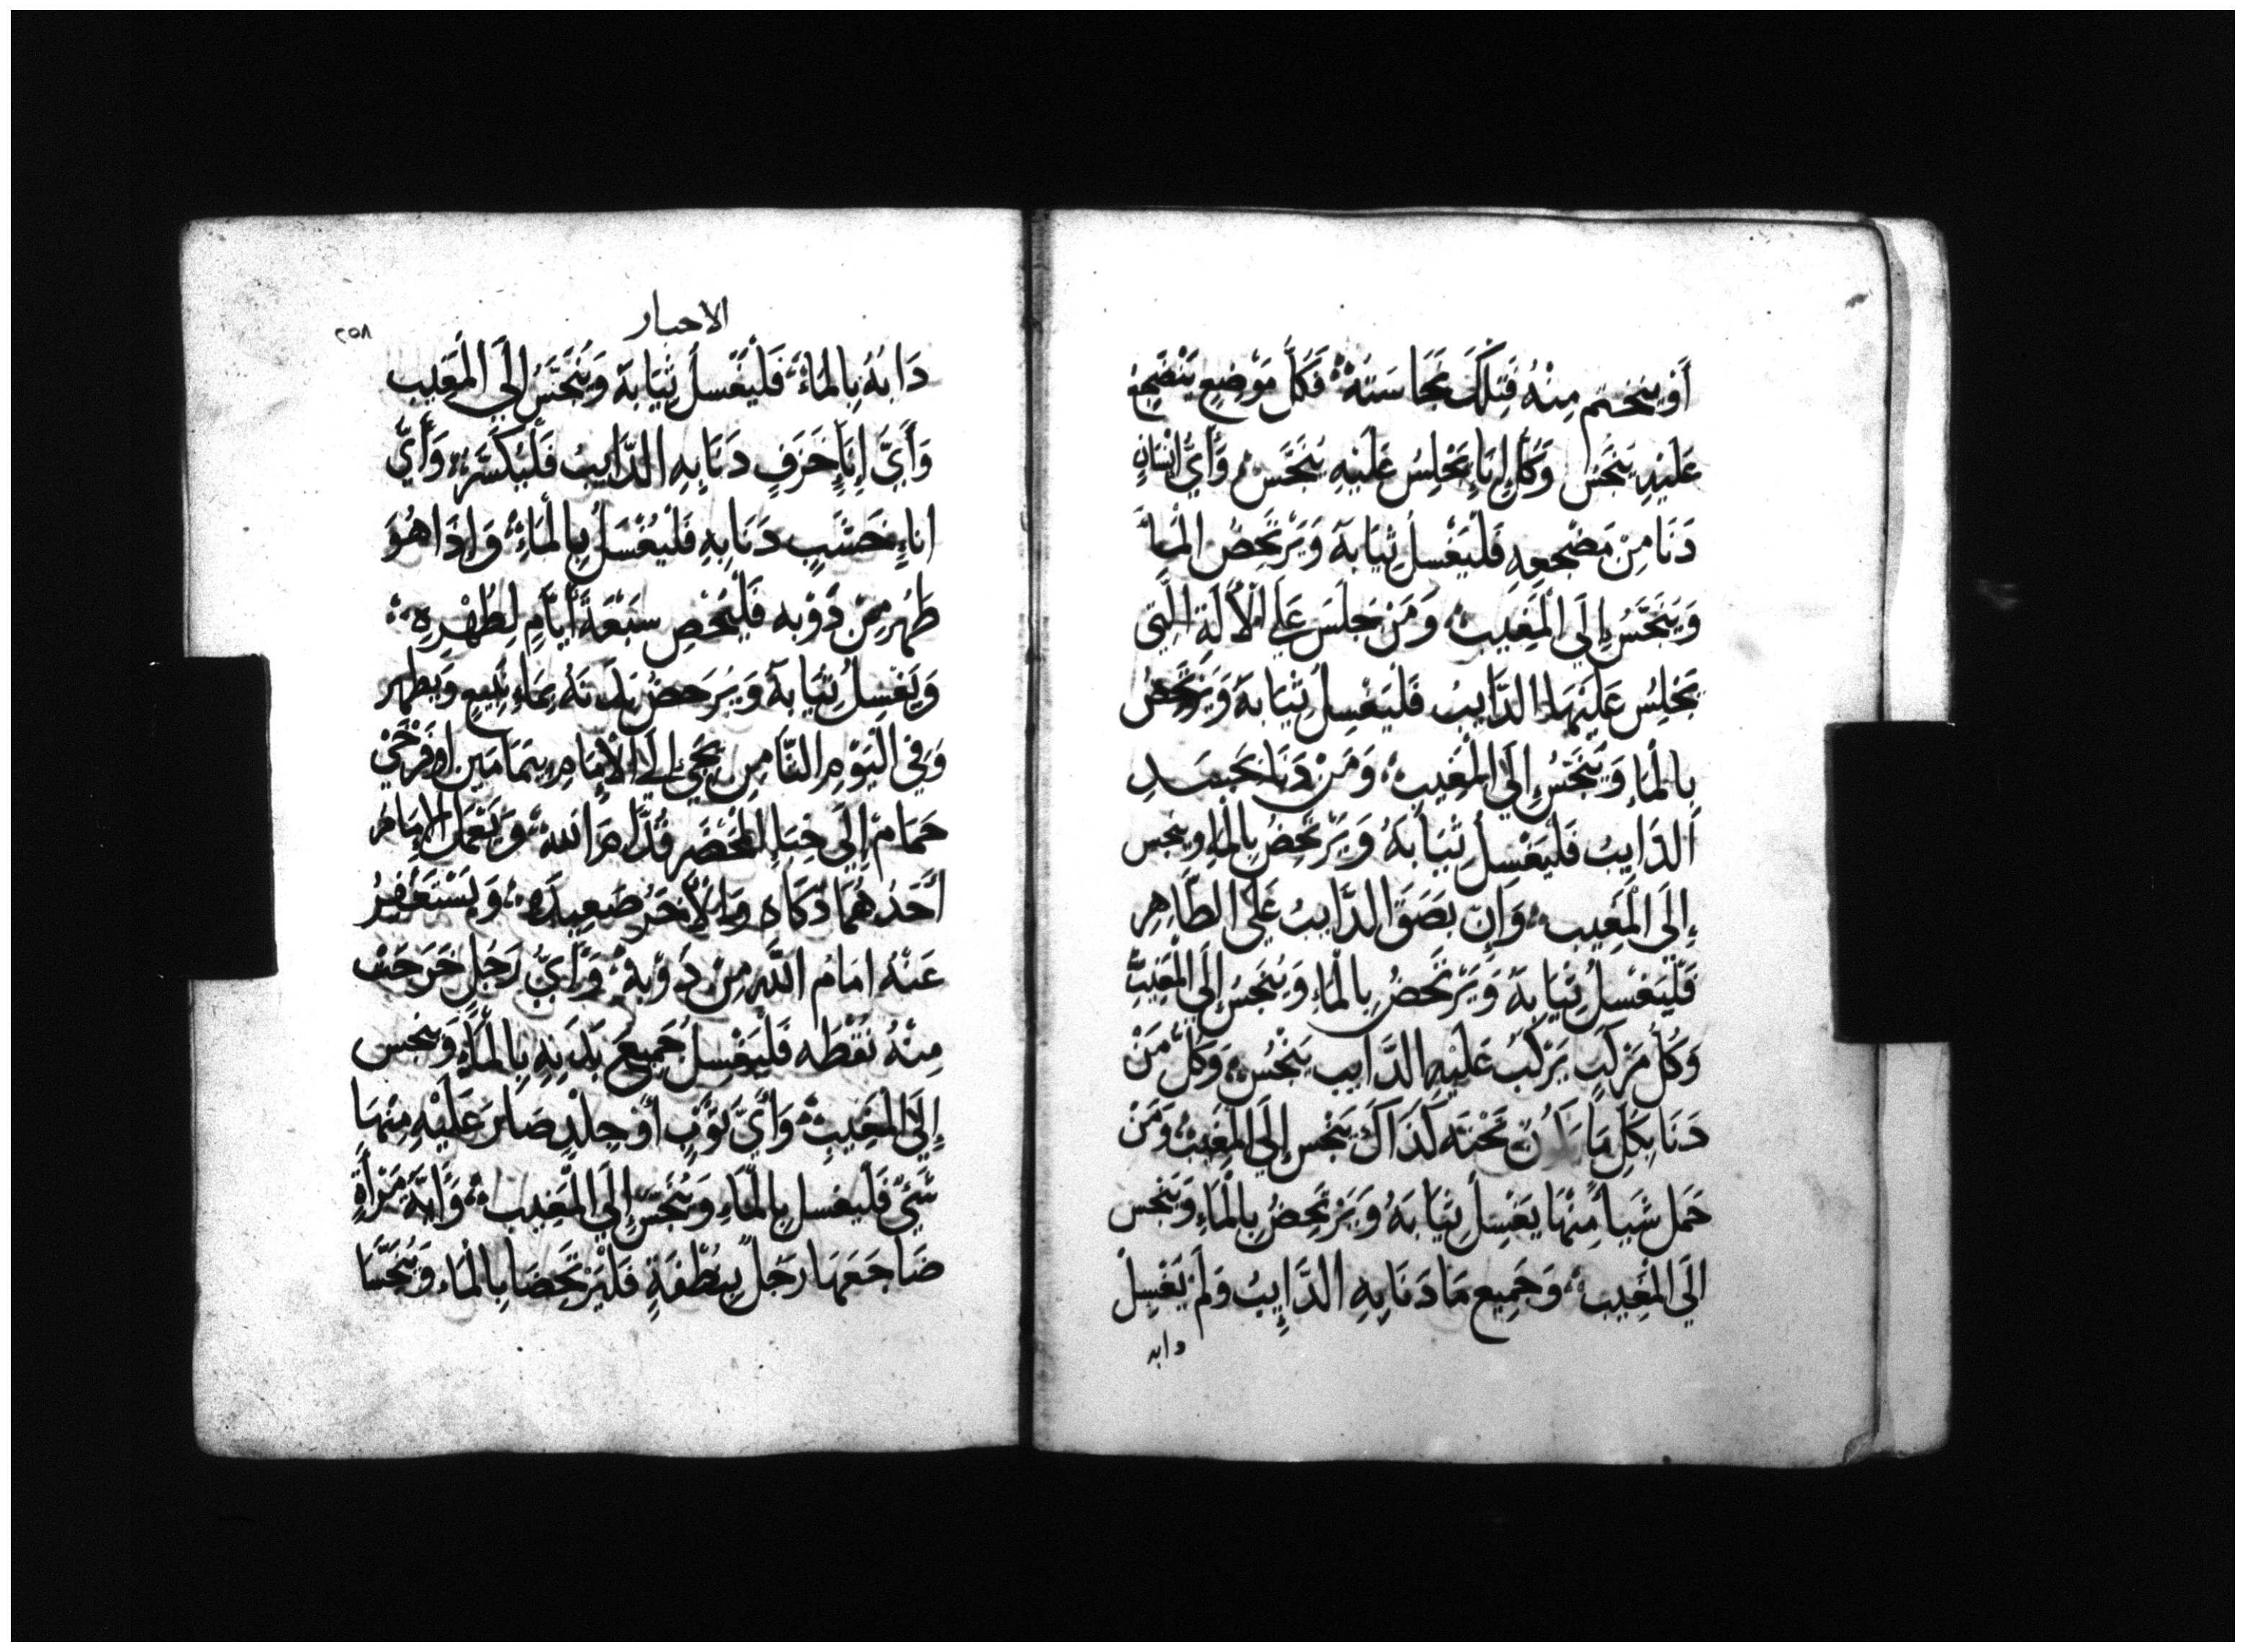 أَو يَنختم مِنْهُ فَتِلْكَ نَجَاسَتهُ فَكُلُّ مَوْضِعٍ يَنْضَجِعُ
عَلَيْهِ يَنجَسُ وَكُلُّ إِنَاءٍ يَجْلِسُ عَلَيْهِ يَنجَسُ وَأَيُّ إِنْسَانٍ
دَنَا مِنْ مَضْجعِهِ فَلْيَغْسِلُ ثِيَابهُ وَيَرْتَحِضُ الْمَاءَ
وَيَتَنَجَّسُ إِلَى الْمَغِيبِ وَمَنْ جَلَسَ عَلَى الْآلَةِ الَّتِي
يَجْلِسُ عَلَيْهَا الذَّايبُ فَلْيَغْسِلُ ثِيَابهُ وَيَرْتَحَضُ
بِالْمَاءِ وَيَنجَسُ إِلَى الْمَغِيبِ وَمَنْ دَنَا بجَسَدِ
الذَّايبُ فَلْيَغْسِلُ ثِيَابَهُ وَيَرْتَحِضُ بِالْمَاءِ وينجس
إِلَى الْمَغِيبِ وَإِن بصَقَ الذَّايبُ عَلَى الطَّاهِرِ
فَلْيَغْسِلُ ثِيَابهُ وَيَرْتَحَضُ بِالْمَاءِ وَيَنجَسُ إِلَى الْمَغِيبِ
وَكُلُّ مَرْكَبٍ يَرْكَبُ عَلَيْهِ الذَّايب يَنْجُسُ وَكُلُّ مَنْ
دَنَا بِكُلِّ مَا تَحْتَه كَذَاكَ يَنْجس إِلَى الْمَغِيبُ وَمَنْ
حَمل شَيأً مِنْهَا يَغْسِلُ ثِيَابَهُ وَيَرْتَحِضُ بِالْمَاءِ وَينجس
الَى الْمَغِيبِ وَجَمِيع مَا دَنَا بِهِ الذَّايبُ وَلَمْ يَغْسِلْ
دابه
الاحبار
٢٥٨
دَابهُ بِالمَاءِ فَلْيَغْسلُ ثِيَابهُ وَيَنجَسُ إِلَى الْمَغِيب
وَأَيُّ إِنَاءٍ خَزَفٍ دَنَا بِهِ الذَّايبُ فَلْيُكْسَر وَأَيُّ
اناءٍ خَشَبٍ دَنَا بِهِ فَلْيُغْسَلُ بِالْمَاءِ وَإِذَا هُوَ
طَهُر مِنْ ذَوْبه فَلْيُحْصِ سَبْعَةَ أَيَّامٍ لِطُهْرِهِ
وَيَغْسِلُ ثِيَابهُ وَيَرحَضُ بَدَنهُ بِمَاءِ نَبِيعٍ وَيطهر
وَفِي الْيَوْمِ الثَّامِنِ يَجِيُ إِلَى الْإِمَامِ بِتمَامَين أَو فَرْخَيْ
حَمَام إِلَى خِبَاءِ الْمَحْضَرِ قُدَّامَ اللهِ وَيَعْمَل الإِمَامُ
أَحَدَهُمَا ذكَاه وَالْآخَرُ صَعِيدَه وَيَسْتَغْفِرُ
عَنْهُ امَامُ اللَّهِ مِنْ ذَوْبهِ وَأَيُّ رَجُلٍ خَرَجَتْ
مِنْهُ نُقْطَه فَلْيَغْسلُ جَمِيعَ بَدَنِهِ بِالْمَاءِ وَينجس
إِلَى الْمَغِيبِ وَأَيُّ ثَوْبٍ أَوْ جِلْدٍ صَارَ عَلَيْهِ مِنْهَا
شَيْءٌ فَلْيغسل بِالْمَاءِ وَيَنجَس إِلَى الْمَغِيب وَايّهُ مَرْأَةٍ
ضَاجَعَهَا رجُلٌ بِنُطْفَةٍ فَلْيَرْتَحَضَا بِالْمَاء وَيَنجسَا